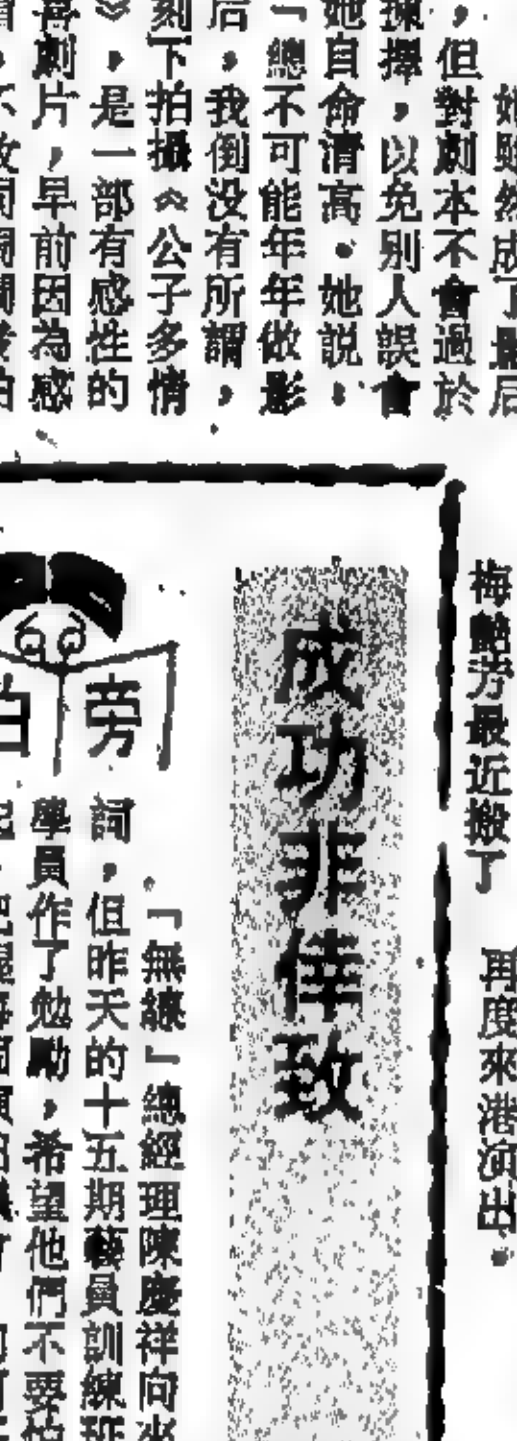 她雖然成了最后
，但對劇本不會過於
揀擇，以免別人誤會
她自命清高。她説，
「總不可能年年做影
后，我倒没有所謂，
刻下拍攝《公子多情
》，是一部有感性的
喜劇片，早前因為感
梅艷芳最近搬了
再度來港演出。
成功非倖致
旁
「無綫」總經理陳慶祥向
詞，但昨天的十五期藝員訓練班
學員作了勉勵，希望他們不要怕